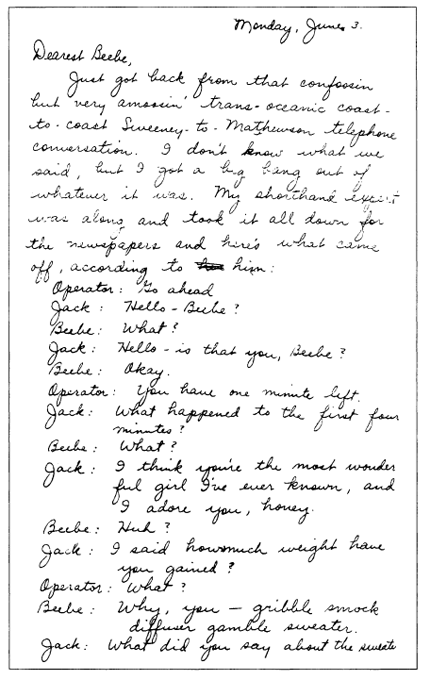 Monday, June 3.
Dearest Beebe,
Just got back from that confoosin
but very amoosin' trans-oceanic coast-
to-coast Sweeney-to-Mathewson telephone
conversation. I don't know what we
said, but I got a big bang out of
whatever it was. My shorthand expert
was along and took it all down for
the newspapers and here's what came
off, according to him:
Operator: Go ahead
Jack: Hello - Beebe?
Beebe: What?
Jack: Hello - is that you, Beebe?
Beebe: Okay.
Operator: You have one minute left.
Jack: What happened to the first four
minutes?
Beebe: What?
Jack: I think you're the most wonder
ful girl I've ever known, and
I adore you, honey.
Beebe: Huh?
Jack: I said how much weight have
you gained?
Operator: What?
Beebe: Why, you — gribble smock
diffuser gamble sweater.
Jack: What did you say about the sweate